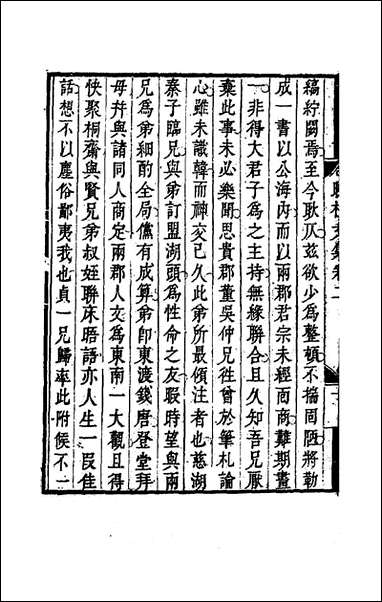 縞紵闕焉至今耿仄茲欲少爲整頓不揣固陋將勒
成一書以公海內而以兩郡君宗未經面商難期畫
一非得大君子爲之主持無緣聯合且久知吾兄厭
棄此事未必樂聞思貴郡董吳仲兄徃曾於筆札論
心雖未識韓而神交已久此弟所最傾注者也慈湖
秦子臨兄與弟訂盟湖頭爲性命之友暇時望與兩
兄爲弟細酌全局儻有成算弟卽東渡錢唐登堂拜
母幷與諸同人商定兩郡人文爲東南一大觀且得
快聚桐齋與賢兄弟叔姪聯床晤語亦人生一段佳
話想不以塵俗鄙夷我也貞一兄歸率此附候不一
文集卷二